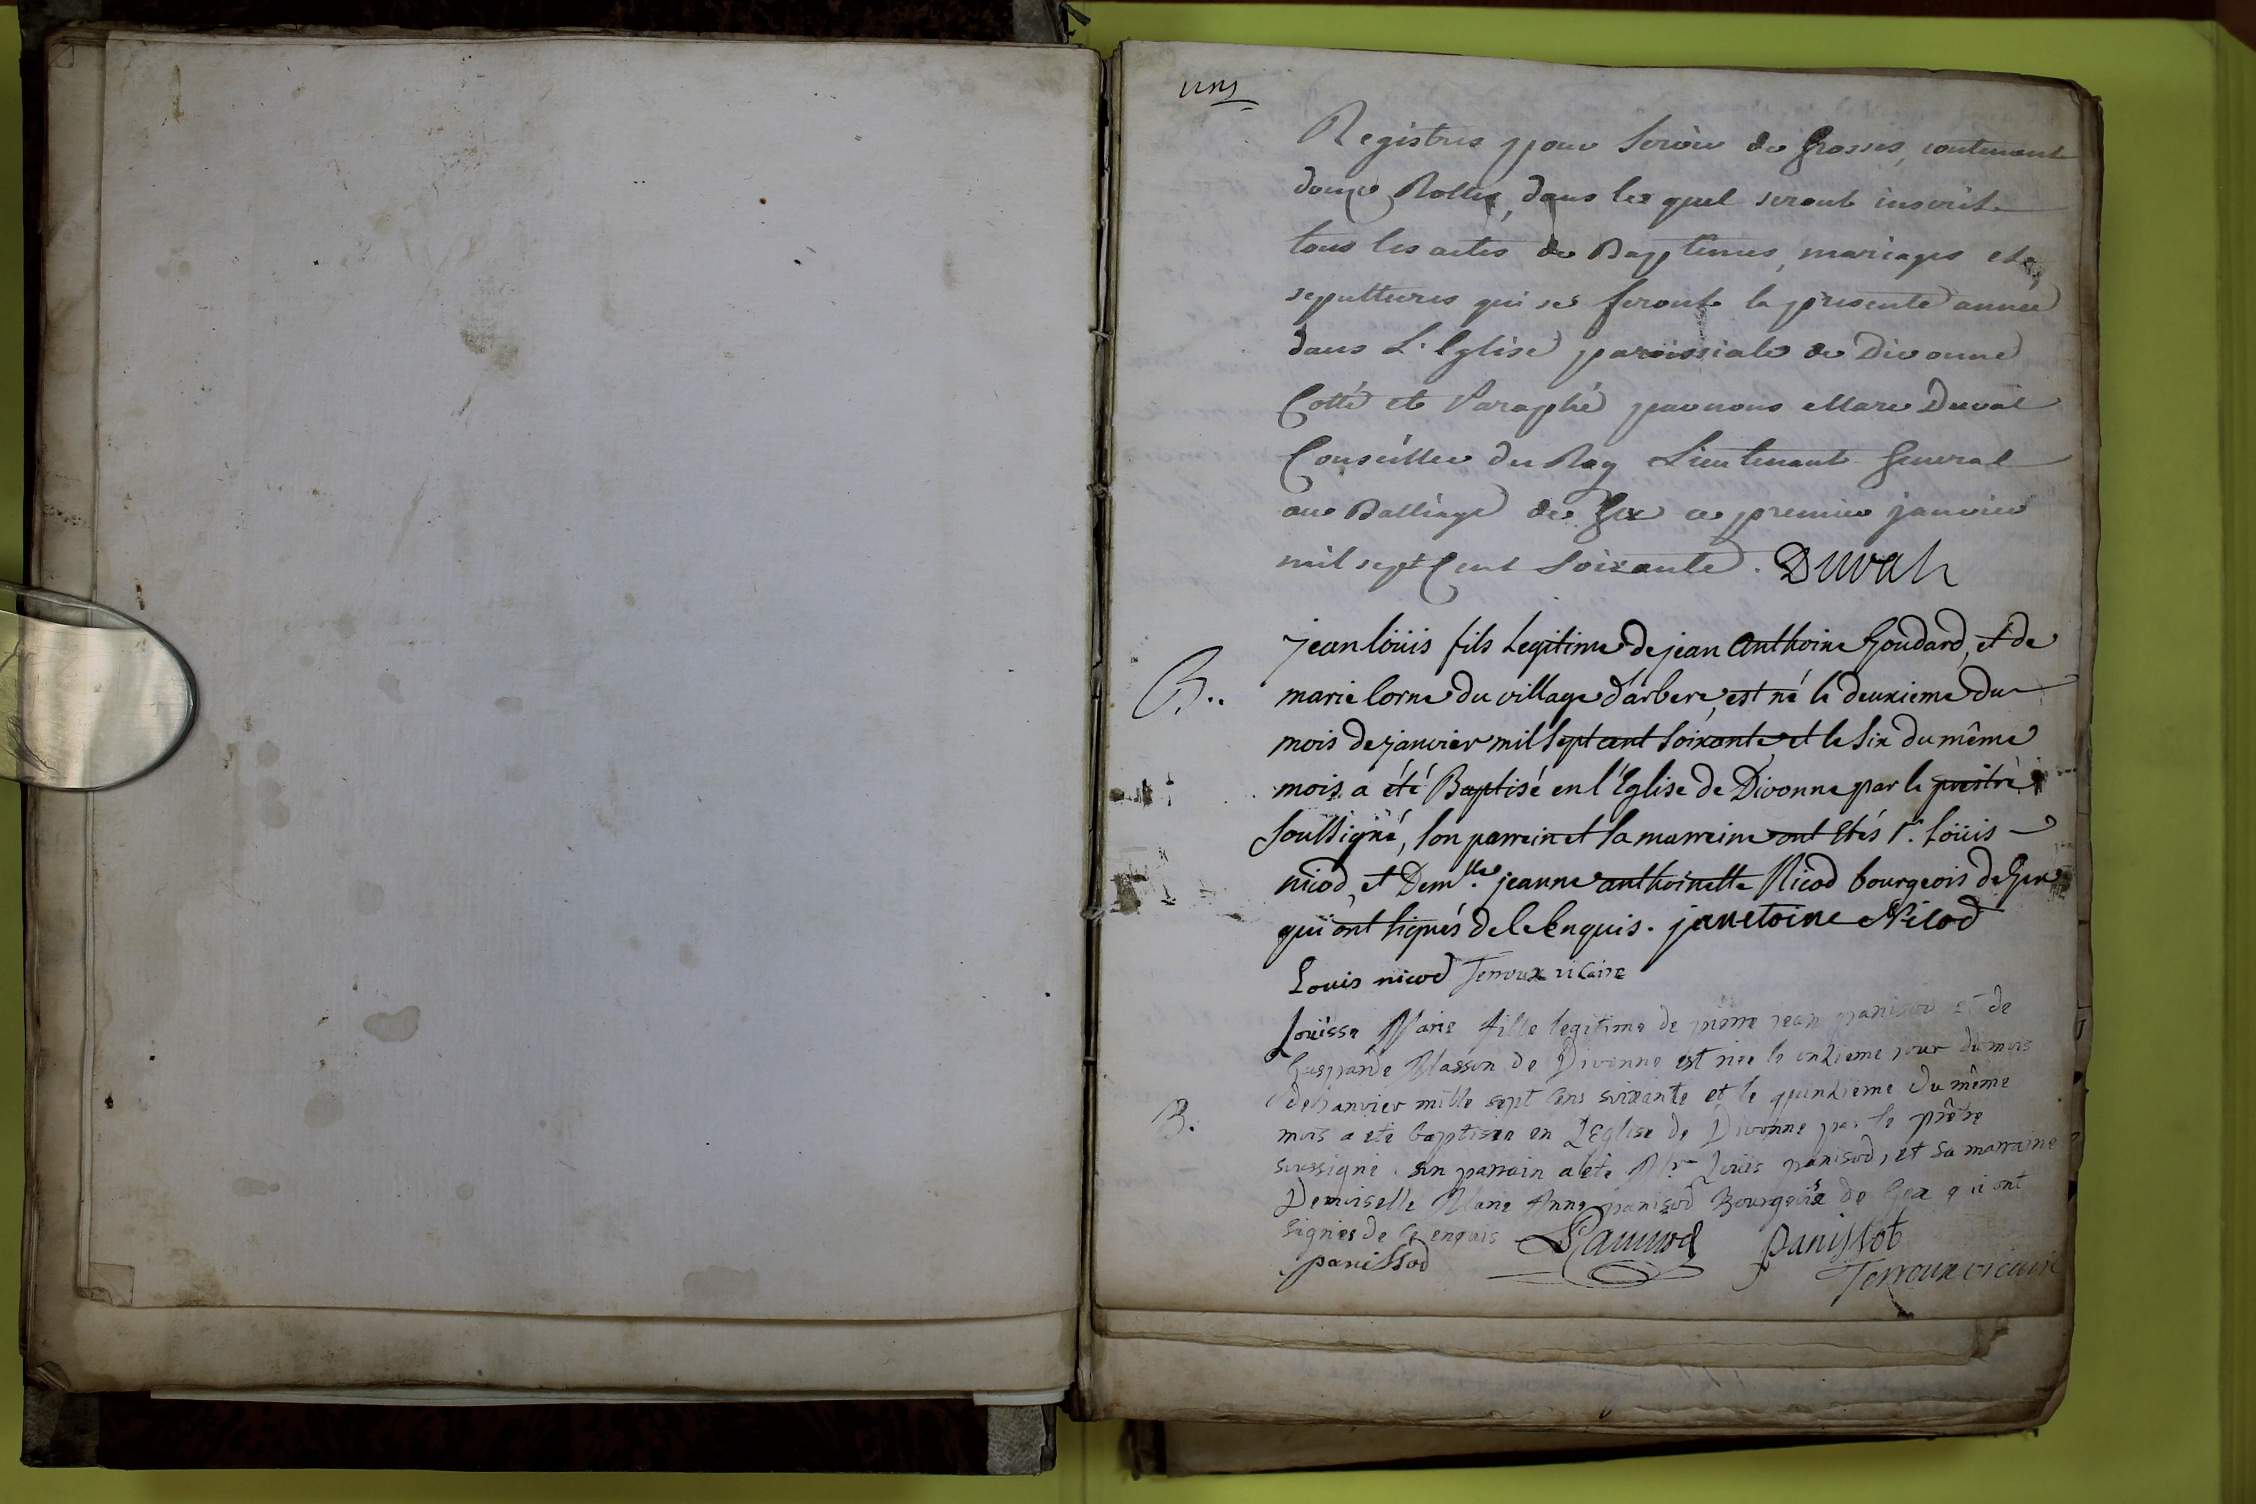 un
Registres pour servir de Grosses, contenant
douze Rolles, dans lesquel seront inscrit
tous les actes de Baptemes, mariages et
sepultures qui se feront la presente année
dans L'Eglise paroissiale de Divonne
Cotté et Paraphé par nous Marc Duval
Conseiller du Roy Lieutenant General
au Balliage de Gex ce premier janvier
mil sept Cent Soixante. Duval
jean loüis fils Legitime de jean Anthoine Goudard, et de
B.. marie lorne du village d'arbere, est né le deuxieme du
mois de janvier mil sept cent soixante et le six du même
mois a été Baptisé en l'Eglise de Divonne par le prestre
soussigné, son parrein et sa marreine ont Etés Sr. Loüis
nicod, et Demlle. jeanne anthoinette Nicod bourgeois de Gex
qui ont signés de ce Enquis. janetoine Nicod
Louis nicod Terroux vicaire
Loüisse Marie fille legitime de pierre jean panisod et de
Gasparde Masson de Divonne est née le onzieme jour du mois
de janvier mille sept cens soixante et le quinzieme du même
B. mois a ete baptisée en L'Eglise de Divonne par le prêtre
soussigné. son parrain a ete Mr. Loüis panisod, et sa marraine
Demoiselle Marie Anne panisod Bourgeois de Gex qui ont
signés de ce enquis Panissod panissot
panissod Terroux vicaire